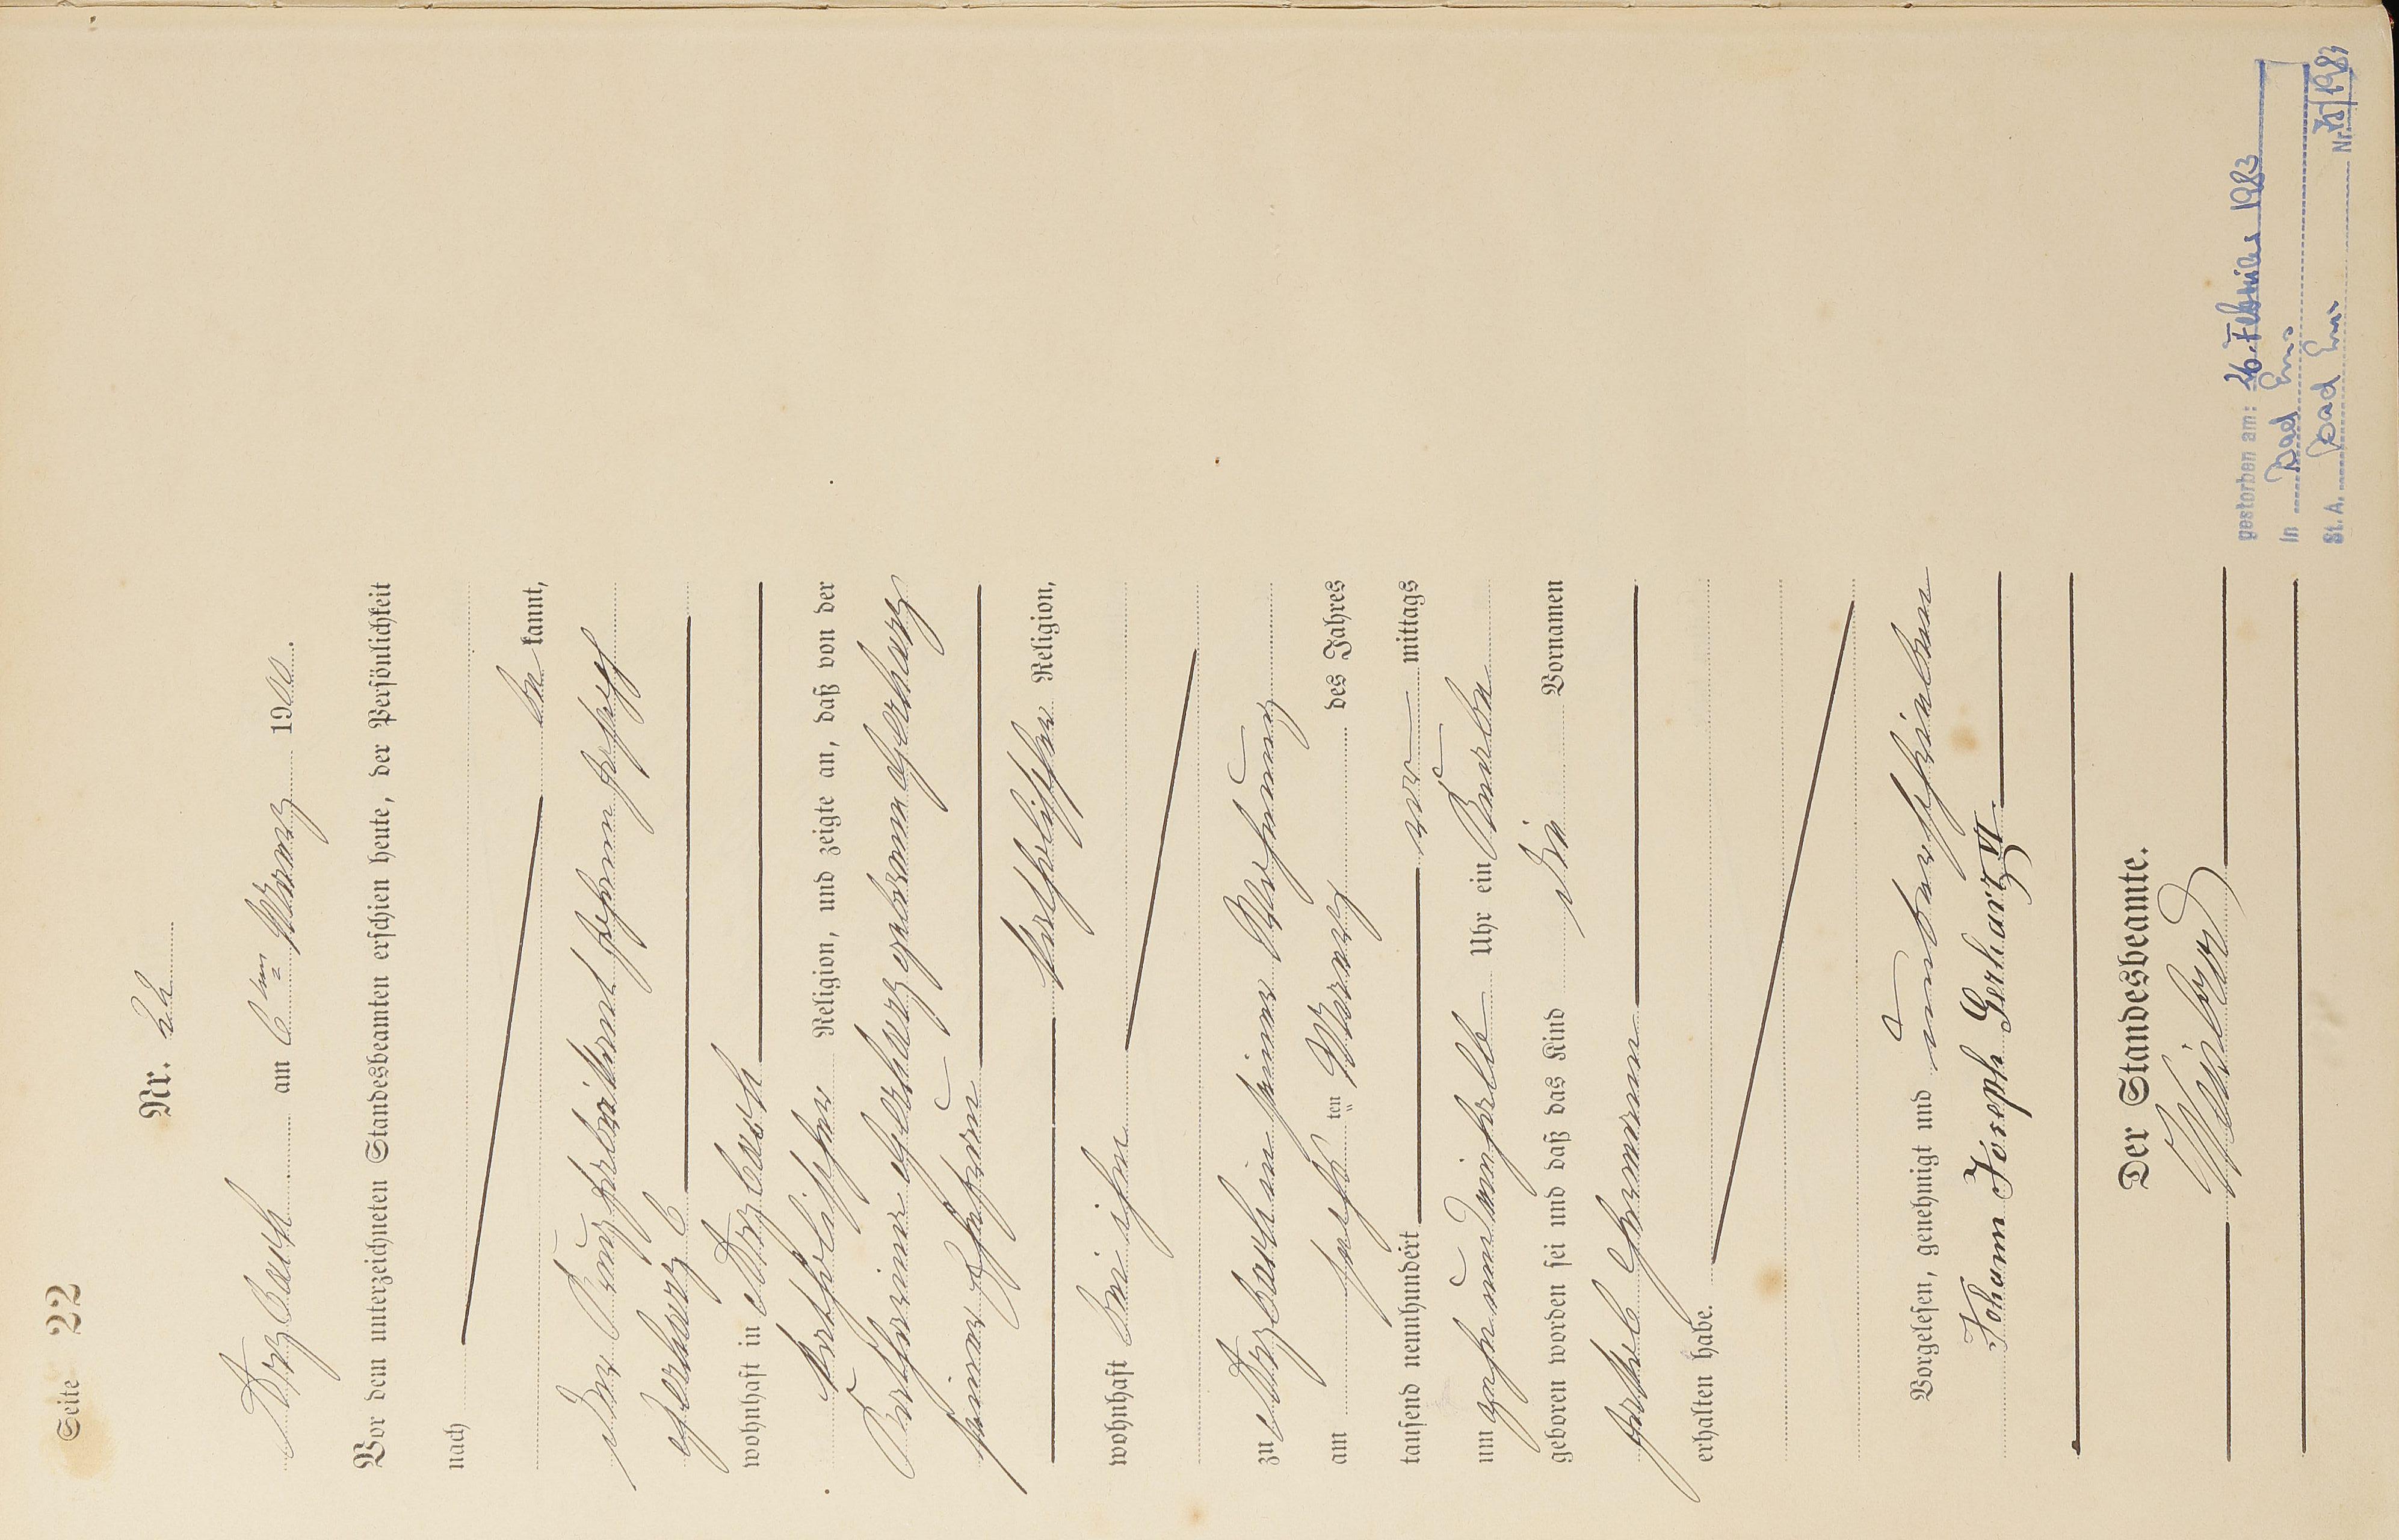 Seite 22
Nr. 22
Arzbach am 6ten Maerz 1900.
Vor dem unterzeichneten Standesbeamten erschien heute, der Persönlichkeit
nach
be kannt,
der Johann Joseph
Gerharz 6
wohnhaft in Arzbach
katholischer Religion, und zeigte an, daß von der
Katharina Gerharz geborenen Gerharz
seiner Ehefrau
katholischer Religion,
wohnhaft bei ihm
zu Arzbach in seiner Wohnung
am sechs ten Maerz des Jahres
tausend neunhundert vor mittags
um zehn und halb Uhr ein Knabe
geboren worden sei und daß das Kind die Vornamen
Jakob Hermann
erhalten habe.
Vorgelesen, genehmigt und unterschrieben
Johann Joseph Gerharz VI
Der Standesbeamte.
gestorben am: 26. Februar 1983
in Bad Ems
St. A. Bad Ems Nr. /1983